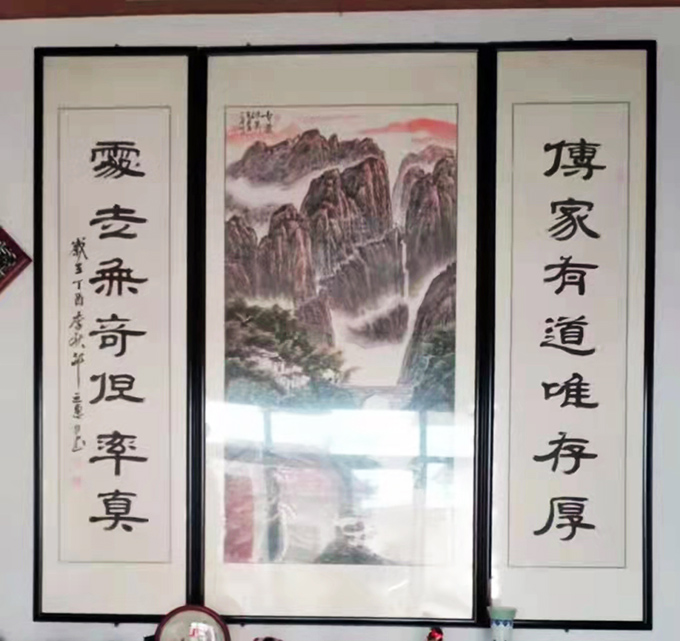 傳家有道唯存厚
處世無奇但率真
歲在丁酉季秋